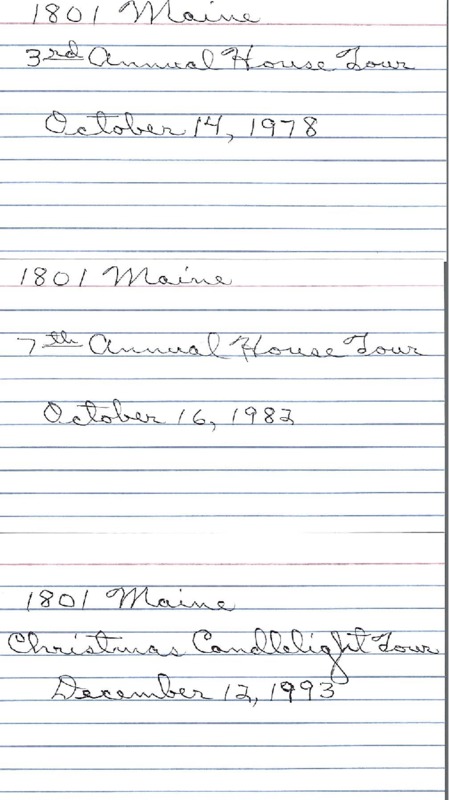 1801 Maine
3rd Annual House Tour
October 14, 1978
1801 Maine
7th Annual House Tour
October 16, 1982
1801 Maine
Christmas Candlelight Tour
December 12, 1993